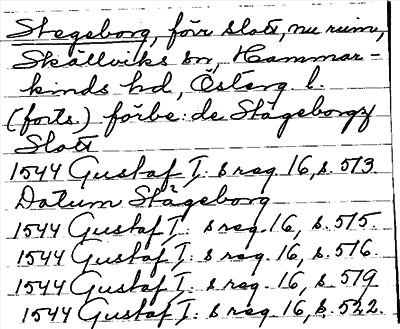 Stegeborg, förr slott, nu ruin,
Skällviks sn, Hammar-
kinds hd, Österg. l.
(forts.) förbe: de Stägeborgz
Slott
1544 Gustaf I: s reg. 16, s. 513.
Datum Stägeborg
1544 Gustaf I: s reg. 16, s. 515.
1544 Gustaf I: s reg. 16, s. 516.
1544 Gustaf I: s reg. 16, s. 519
1544 Gustaf I: s reg. 16, s. 522.